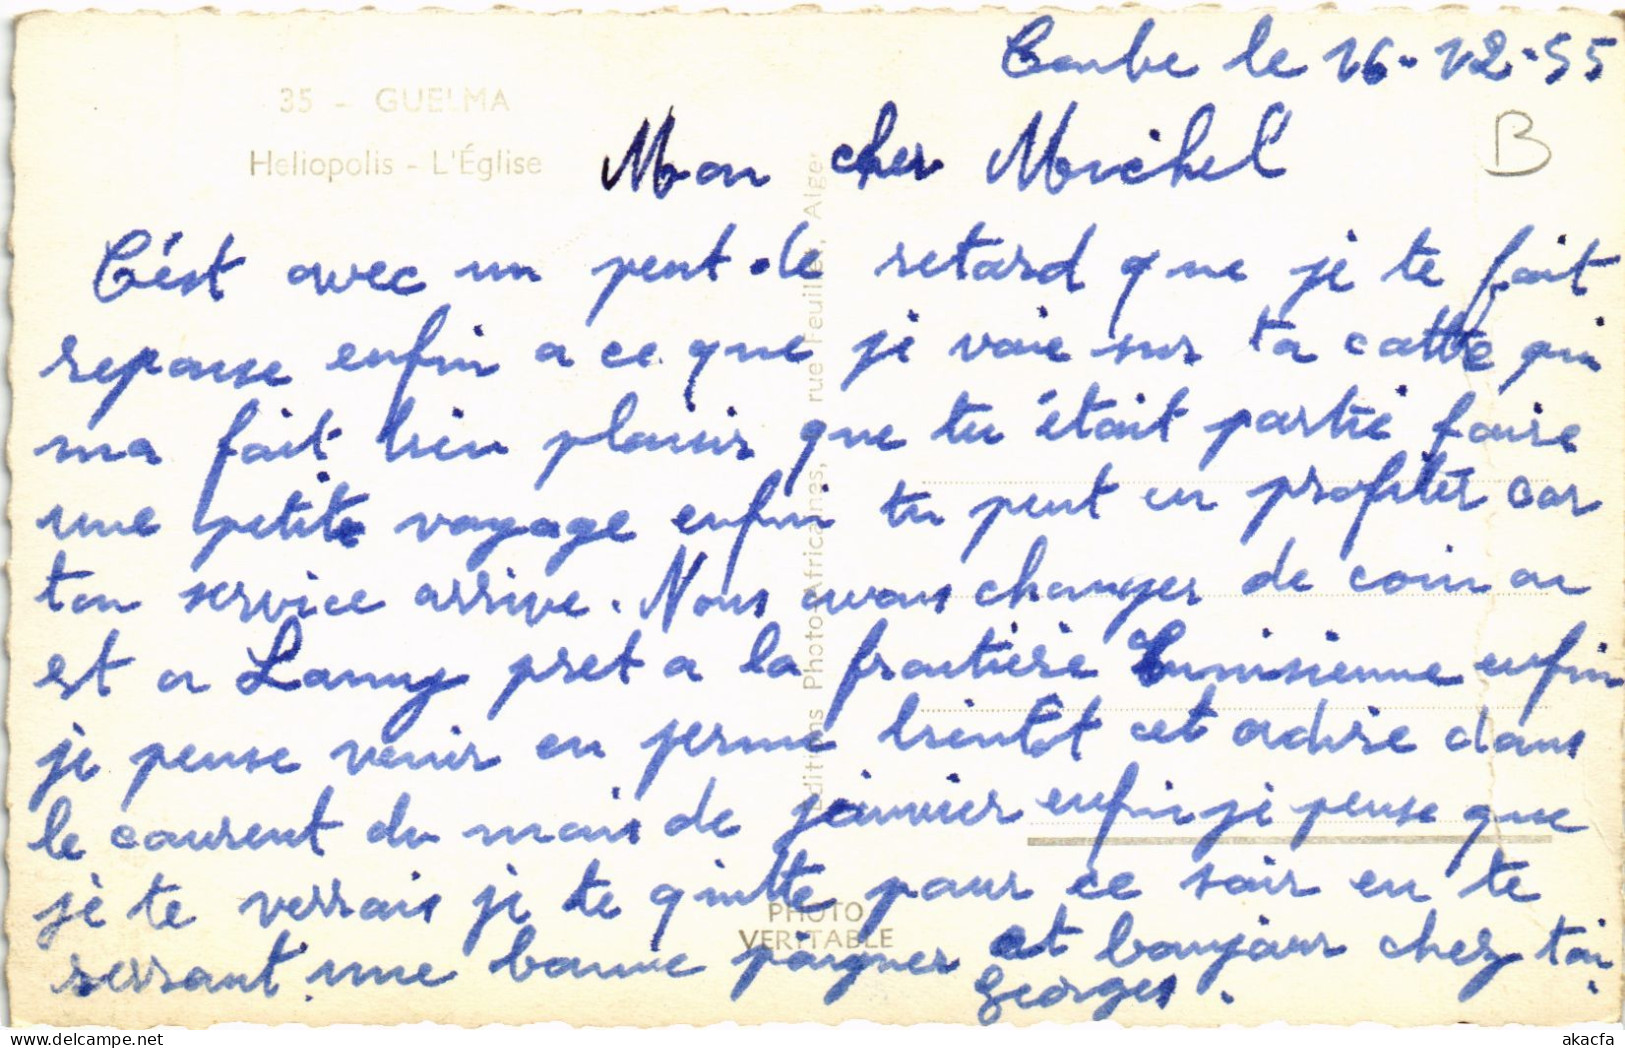 le 16-12-55
B
35 - GUELMA
Heliopolis - L'Église
Mon cher Michel
C'est avec un peut de retard que je te fait
reponse enfin a ce que je voie sur ta catte qui
ma fait bien plaisir que tu était partie faire
une petite voyage enfin tu peut en profiter car
ton service arrive. Nous avons changer de coin on
est a Lamy pret a la frontière Tunisienne enfin
je pense venir en perme bientôt cet adire dans
le courent du mois de janvier enfin je pense que
je te verrais je te quitte pour ce soir en te
serrant une bonne poigner et bonjour chez toi.
Georges.
Editions Photo-Africaines, rue Feuillet, Alger
PHOTO
VERITABLE
akacfa